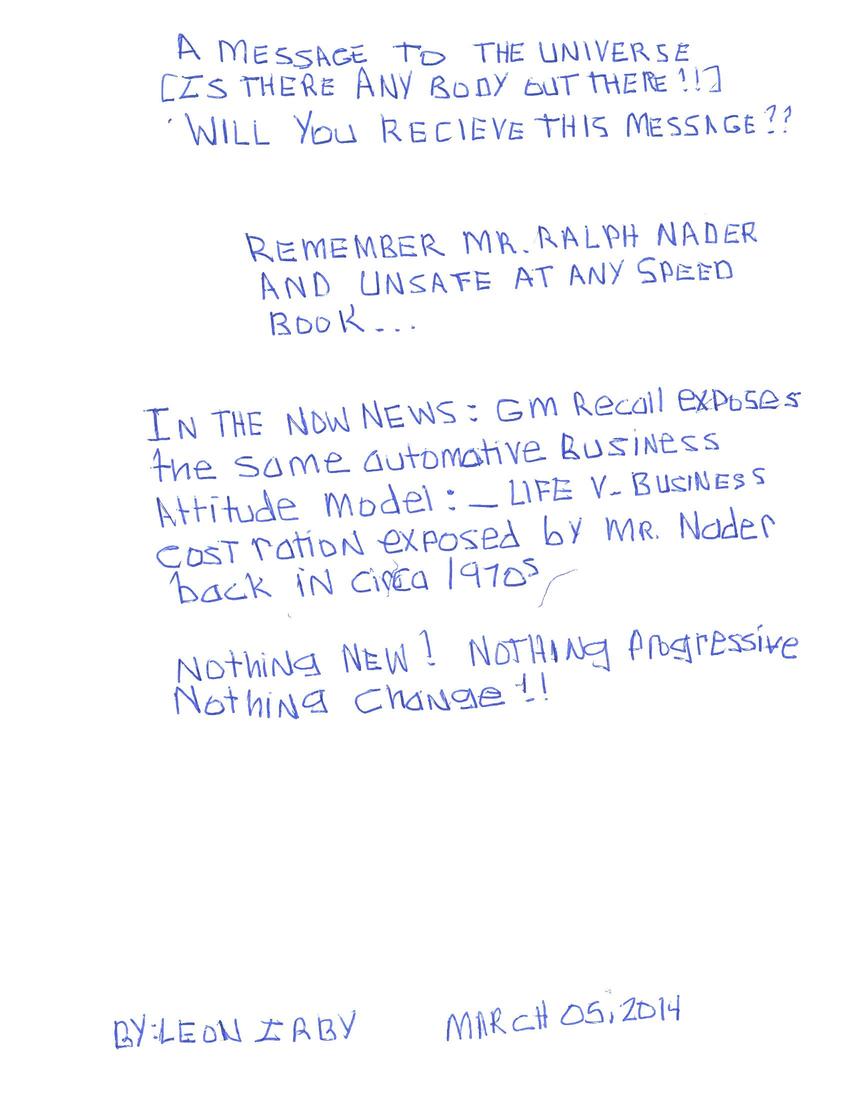 A MESSAGE TO THE UNIVERSE
[IS THERE ANY BODY OUT THERE!!]
WILL YOU RECIEVE THIS MESSAGE??
REMEMBER MR. RALPH NADER
AND UNSAFE AT ANY SPEED
BOOK...
IN THE NOW NEWS: GM Recall exposes
the same automotive Business
Attitude Model: _ LIFE V- BUSINESS
COST ration exposed by MR. Nader
back in circa 1970s
Nothing NEW! NOTHING Progressive
Nothing Change!!
BY:LEON IRBY MARCH 05, 2014